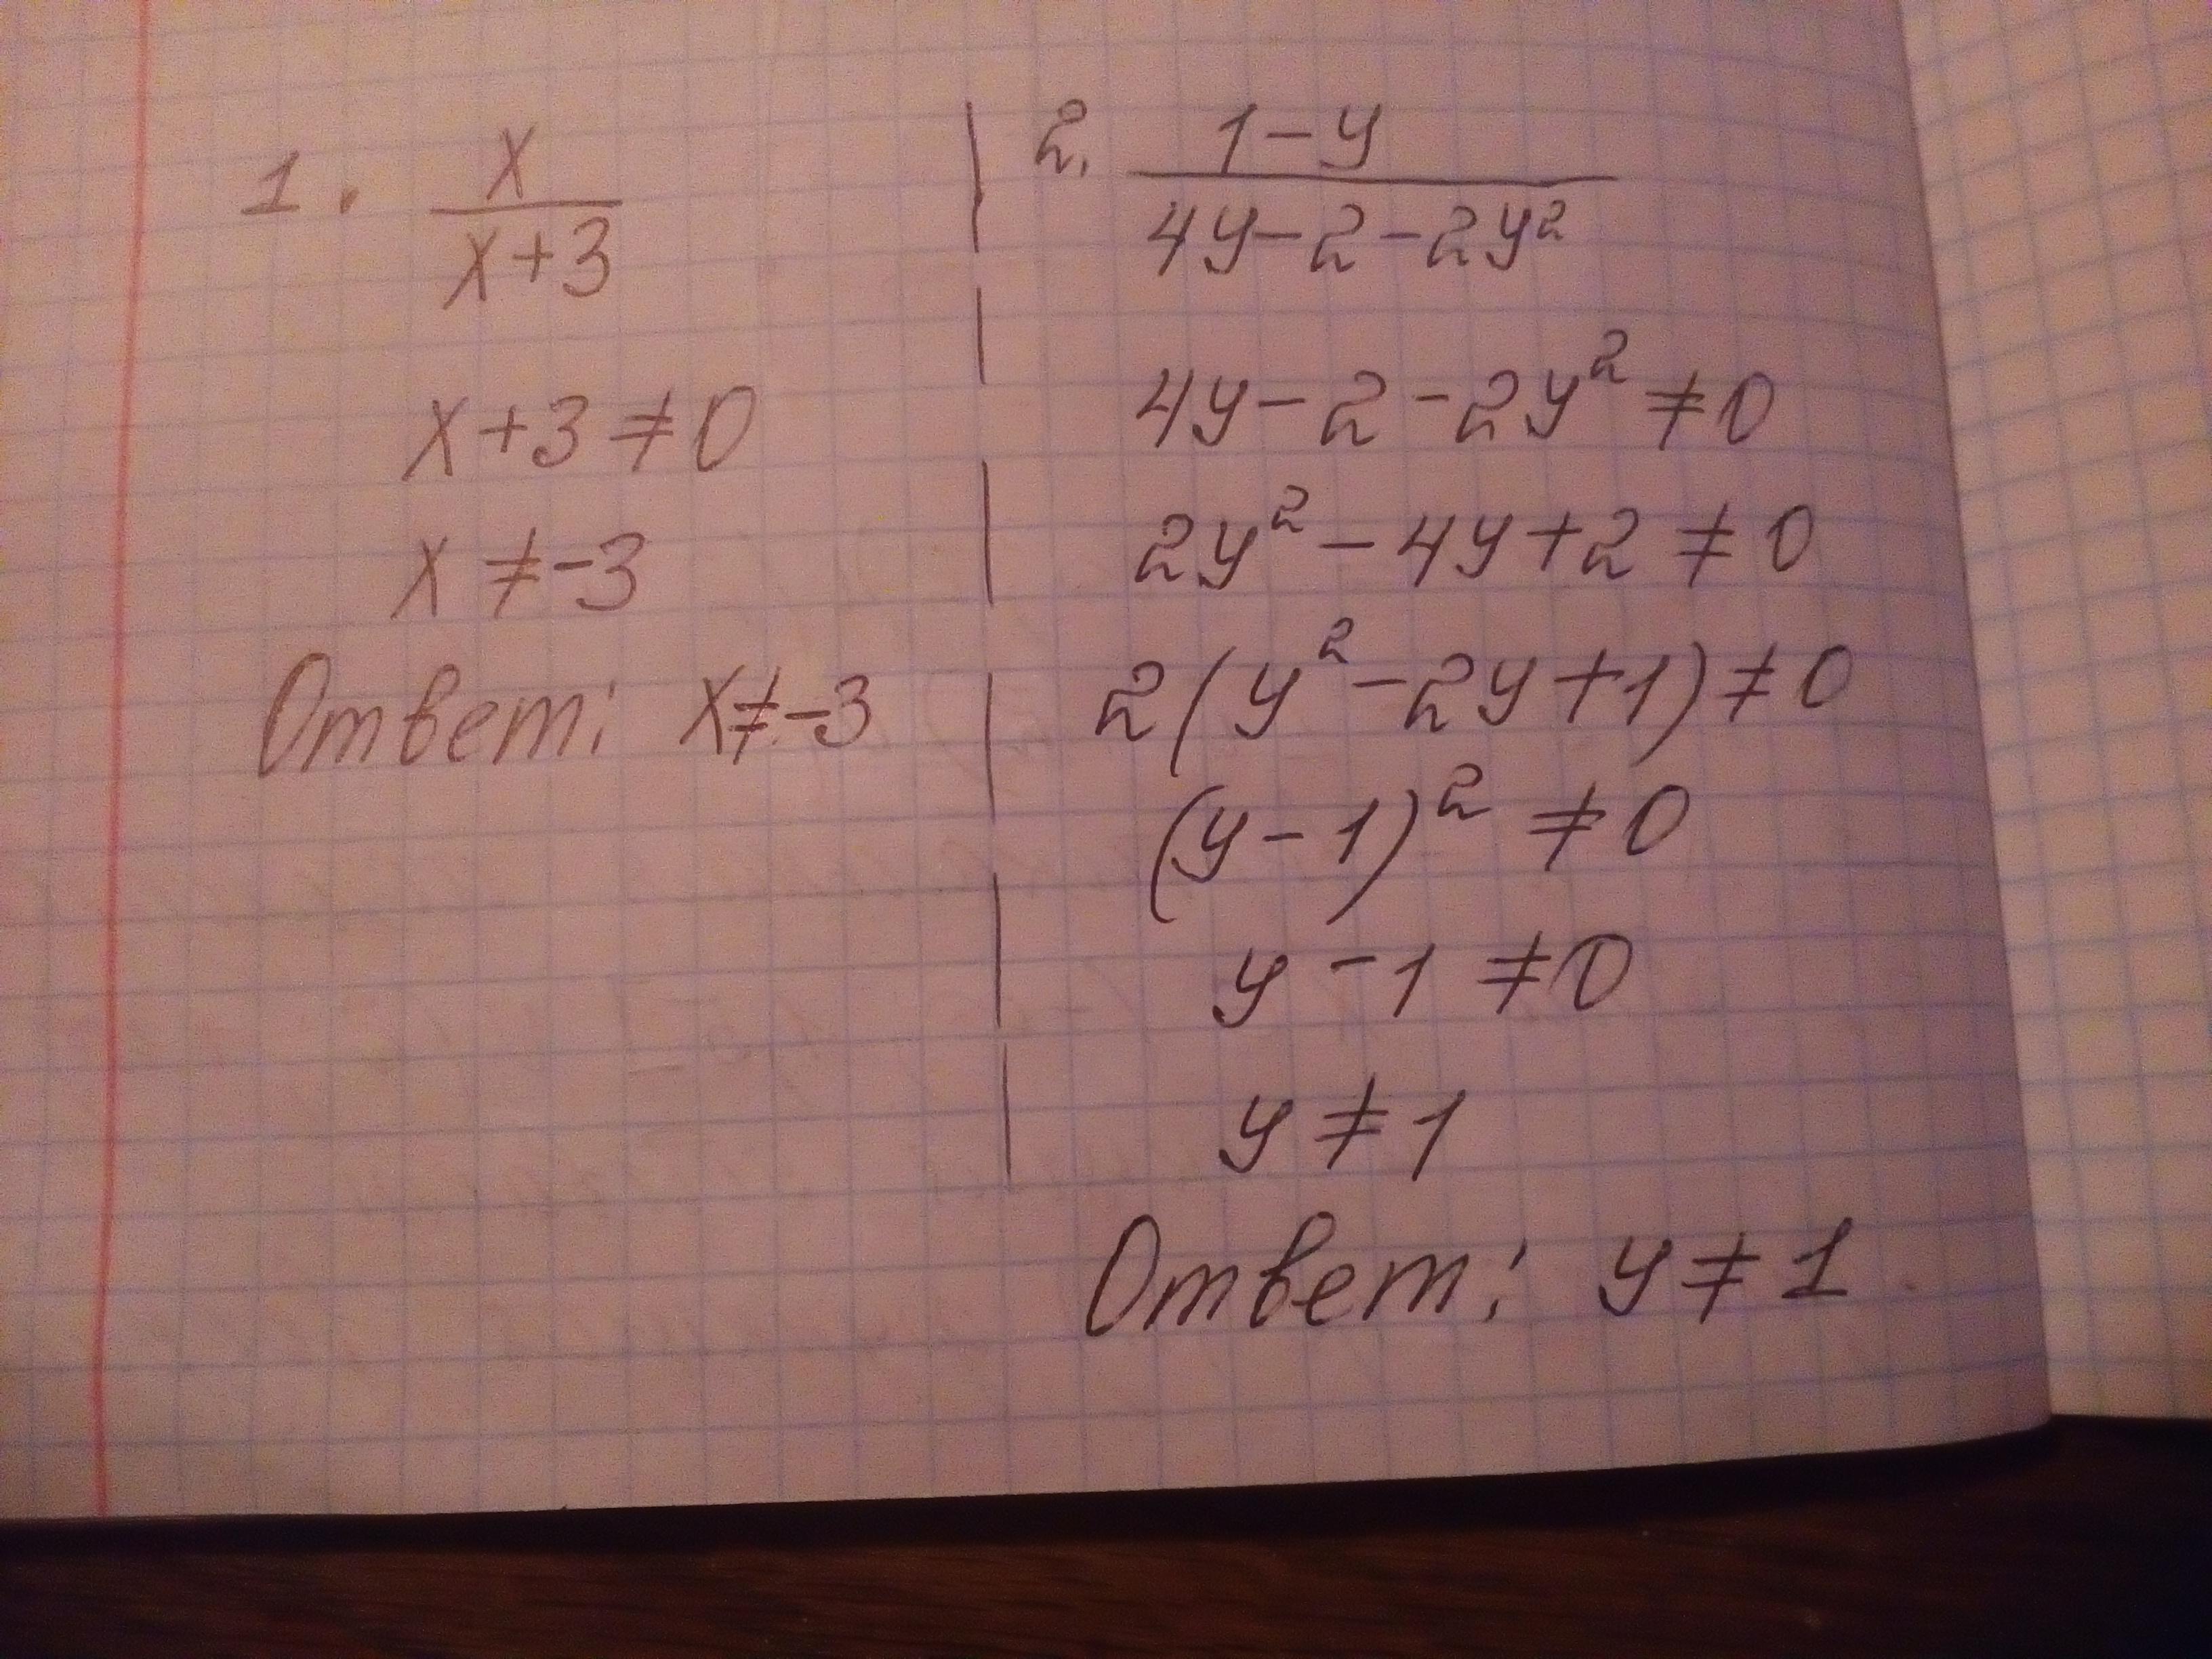 1. x
x+3
x+3≠0
x≠-3
Ответ: x≠-3
2. 1-y
4y-2-2y²
4y-2-2y²≠0
2y²-4y+2≠0
2(y²-2y+1)≠0
(y-1)²≠0
y-1≠0
y≠1
Ответ: y≠1